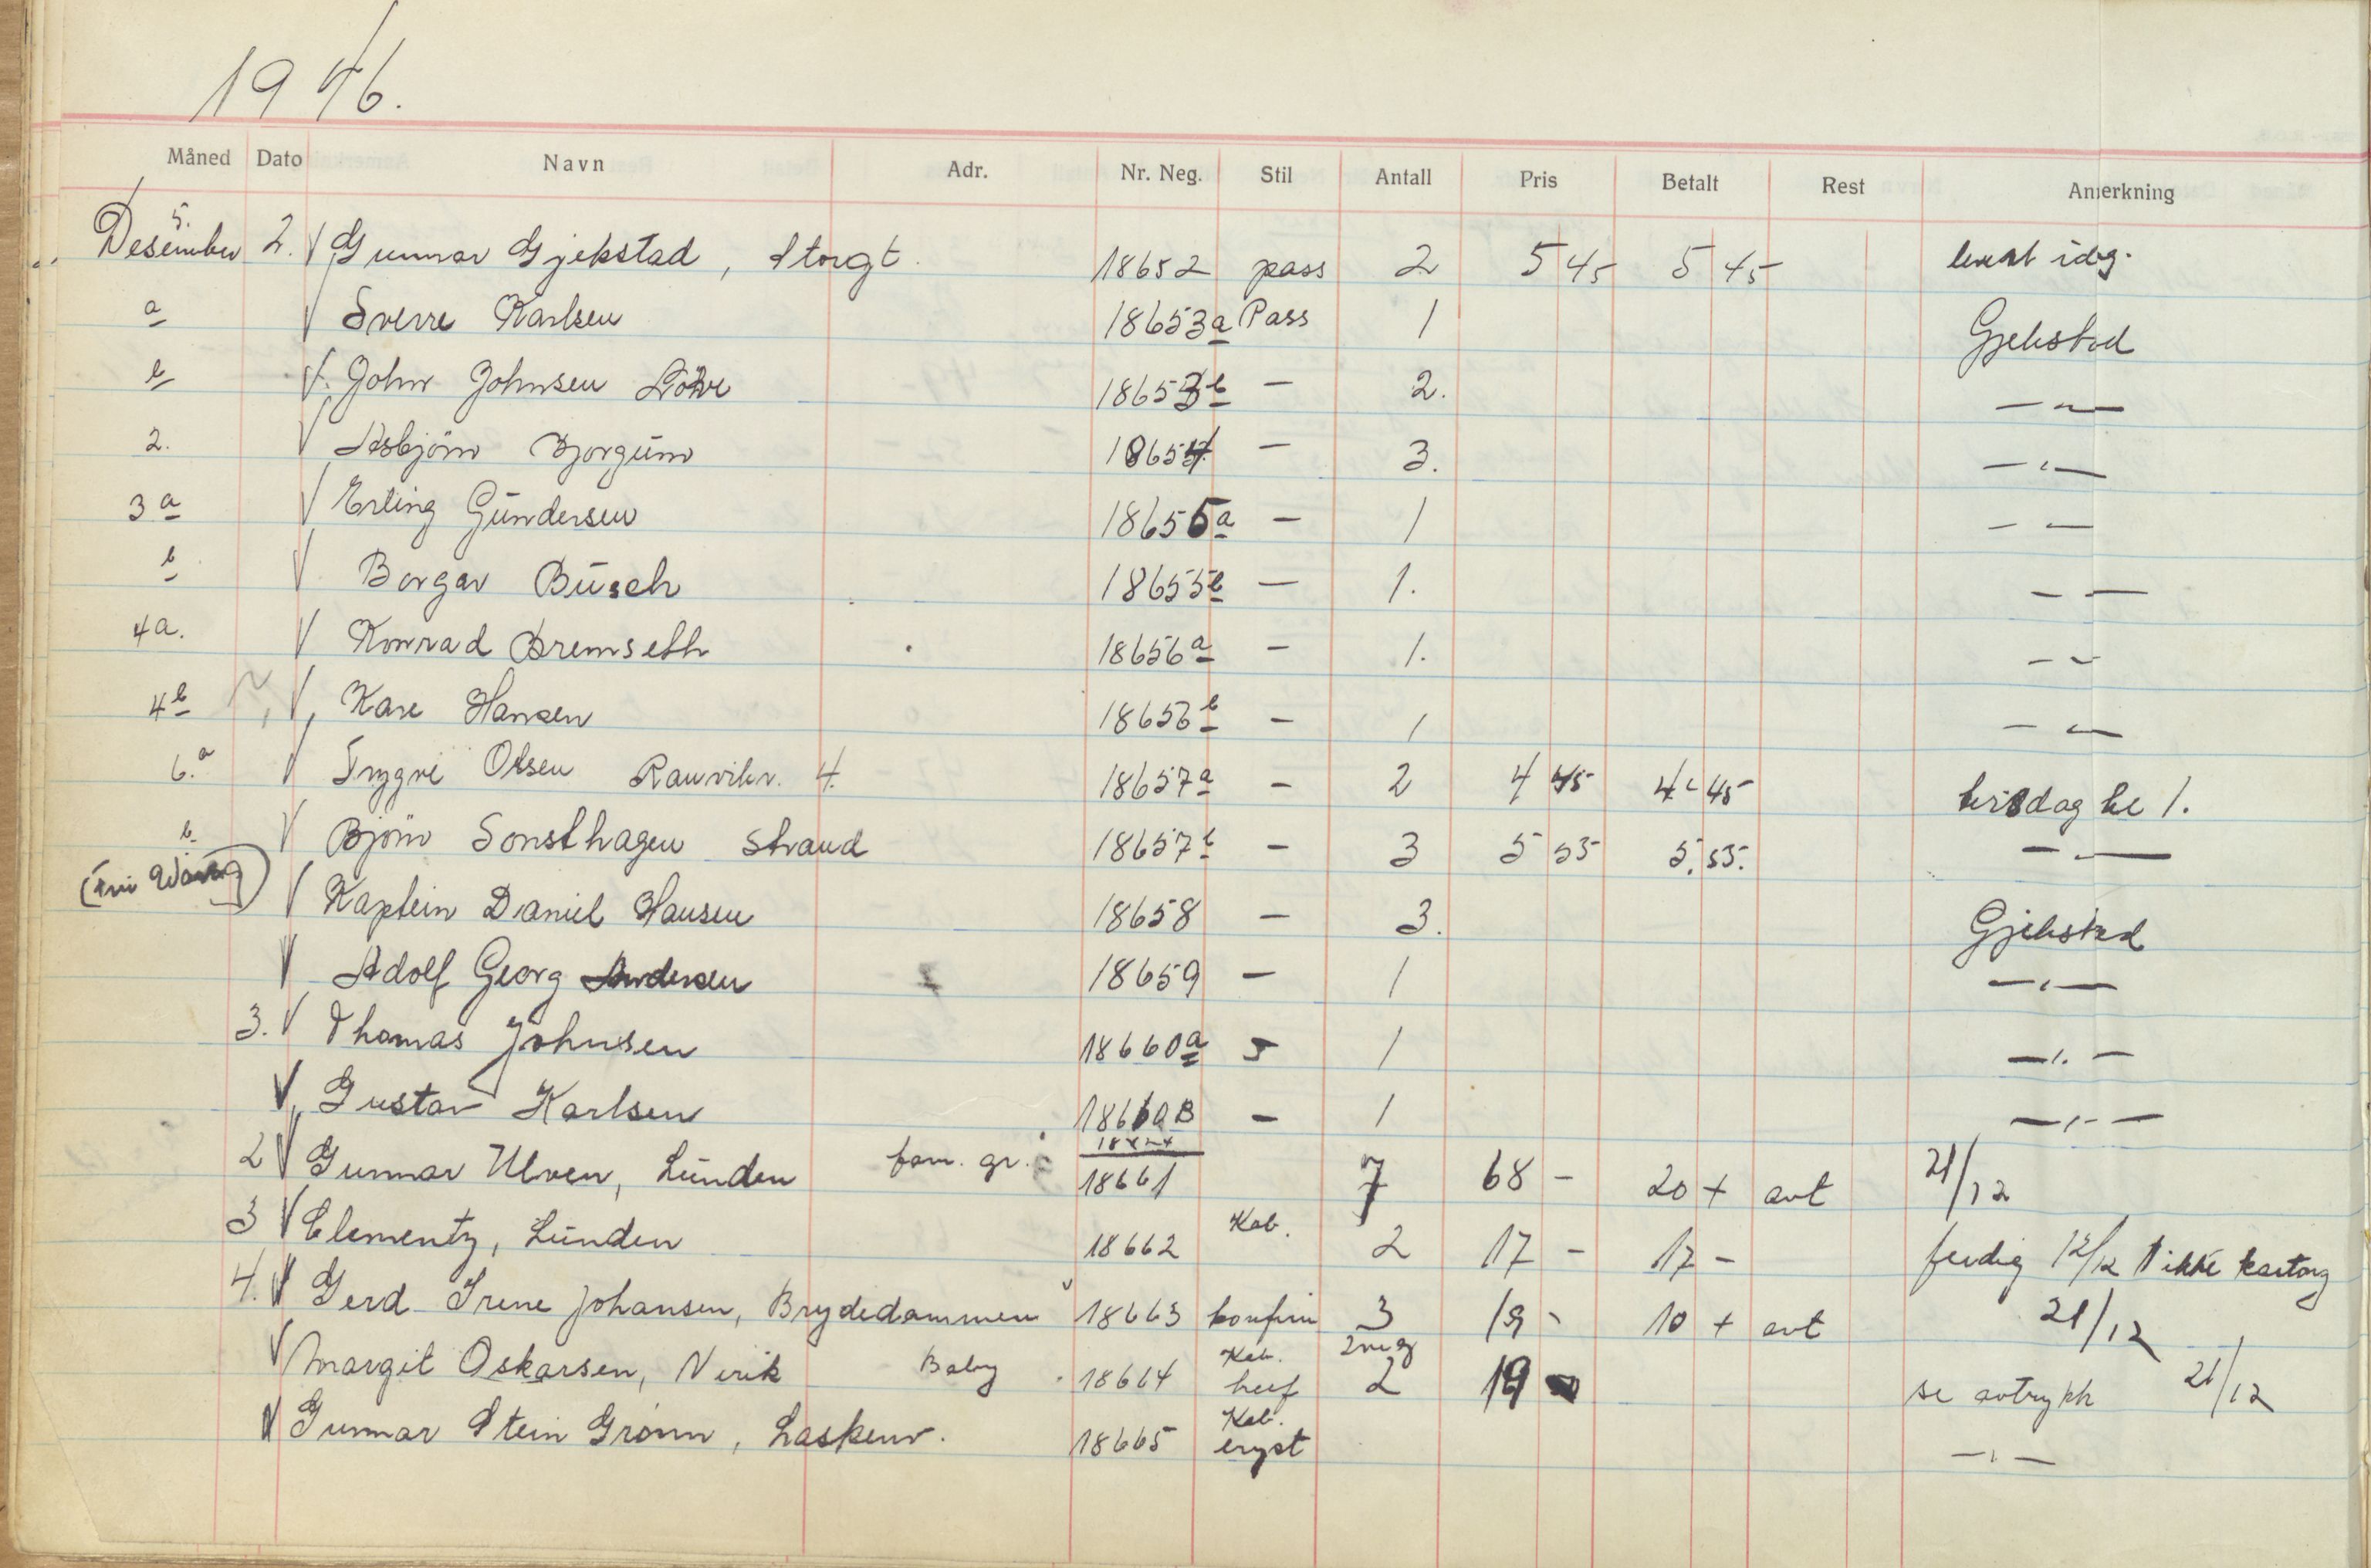 1946.
Måned Dato Navn Adr. Nr. Neg. Stil Antall Pris Betalt Rest Anmerkning
5.
Desember 2. V Gunnar Gjekstad, Storgt. 18652 pass 2 5 45 5 45 levert idag.
a V Sverre Karlsen 18653a Pass 1 Gjekstad
b V John Johnsen 18653b — 2. — " —
2. V Asbjörn Bjorgum 18654 — 3. — " —
3a V Erling Gundersen 18655a — 1 — —
b V Borgar Busch 18655b — 1. — —
4a. V Konrad Bremseth 18656a — 1. — —
4b V Kåre Hansen 18656b — 1 — —
6.a V Trygve Olsen Ranvikv. 4. 18657a — 2 4 45 4 45 tirsdag kl 1.
b V Björn Sonsthagen Strand 18657b — 3 5 55 5. 55. — " —
(Fru) V Kaptein Daniel Hansen 18658 — 3. Gjekstad
V Adolf Georg Andersen 18659 — 1 — " —
3. V Thomas Johnsen 18660a — 1 — " —
V Gustav Karlsen 18660B — 1 — " —
2 V Gunnar Ulven, Lunden fam. gr. 18661 7 68 — 20 + avt 21/12
3 V Clementz, Lunden 18662 Kab. 2 17 — 17 — ferdig 12/12 ikke kartong
4. V Gerd Irene Johansen, Brydedammen 18663 konfirm 3 19 — 10 + avt 21/12
V Margit Oskarsen, Virik Baby 18664 Kab. 2 neg
2 19 — se avtrykk 21/12
V Gunnar Stein Grönn, Laskenv. 18665 Kab.
bryst — " —